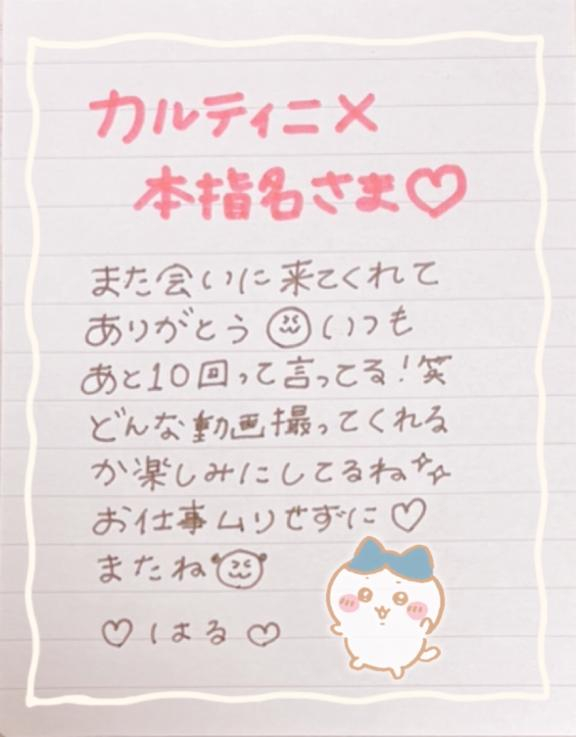 カルティニ×
本指名さま♡
また会いに来てくれて
ありがとう いつも
あと10回って言ってる!笑
どんな動画撮ってくれる
か楽しみにしてるね
お仕事ムリせずに♡
またね
♡はる♡